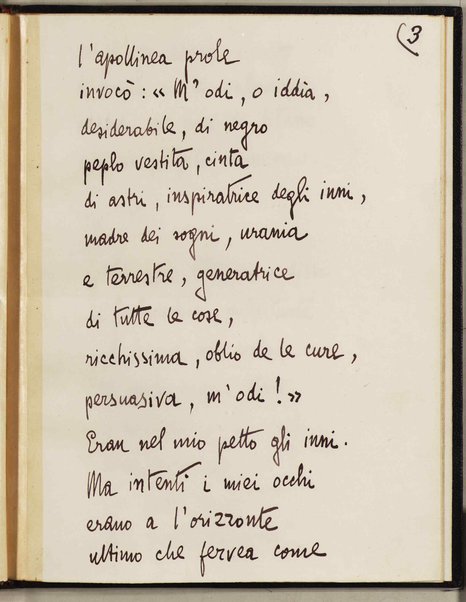 (3
l'apollinea prole
invocò: «M'odi, o iddia,
desiderabile, di negro
peplo vestita, cinta
di astri, inspiratrice degli inni,
madre dei sogni, urania
e terrestre, generatrice
di tutte le cose,
ricchissima, oblio de le cure,
persuasiva, m'odi!»
Eran nel mio petto gli inni.
Ma intenti i miei occhi
erano a l'orizzonte
ultimo che fervea come